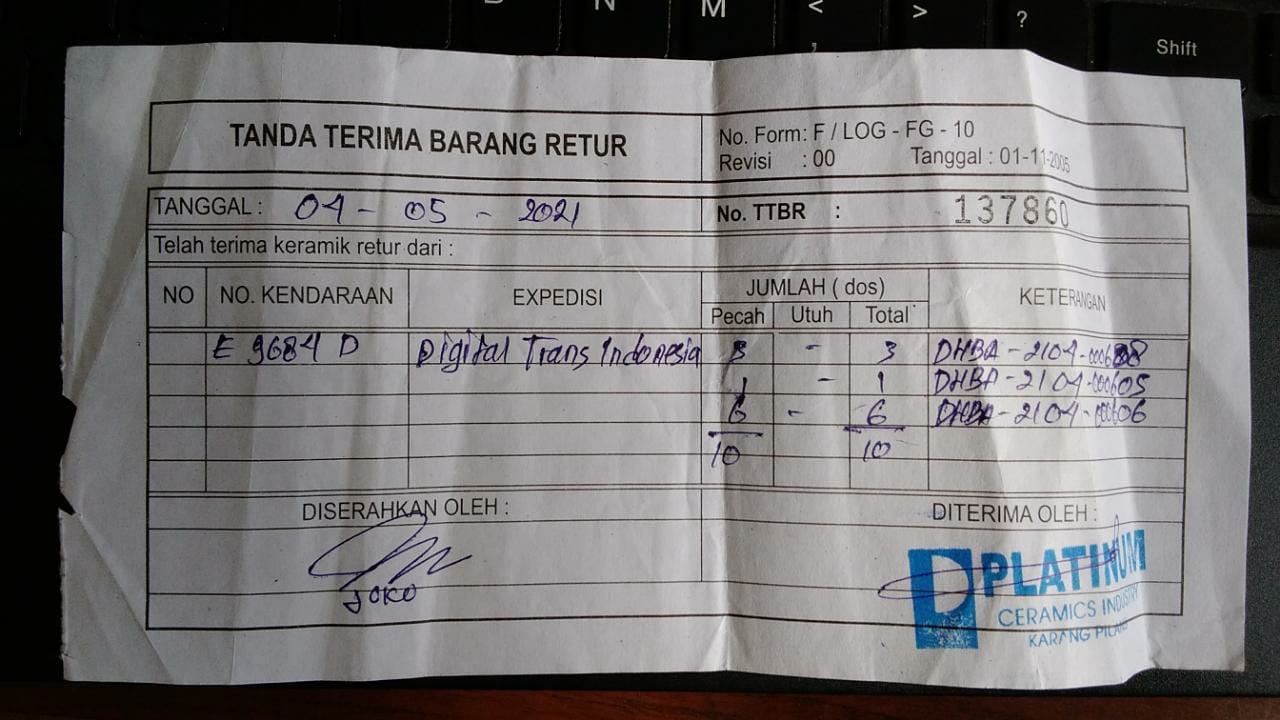 N M < > ?
, Shift
TANDA TERIMA BARANG RETUR
No. Form: F / LOG - FG - 10
Revisi : 00 Tanggal : 01-11-2005
TANGGAL : 04 - 05 - 2021
No. TTBR : 137860
Telah terima keramik retur dari :
NO NO. KENDARAAN EXPEDISI JUMLAH ( dos) KETERANGAN
Pecah Utuh Total
E 9684 D Digital Trans Indonesia 3 - 3 DHBA - 2104-
1 - 1 DHBA - 2104-000605
6 - 6 DHBA - 2104-000606
10 10
DISERAHKAN OLEH : DITERIMA OLEH :
JOKO
PLATINUM
CERAMICS INDUSTRY
KARANG